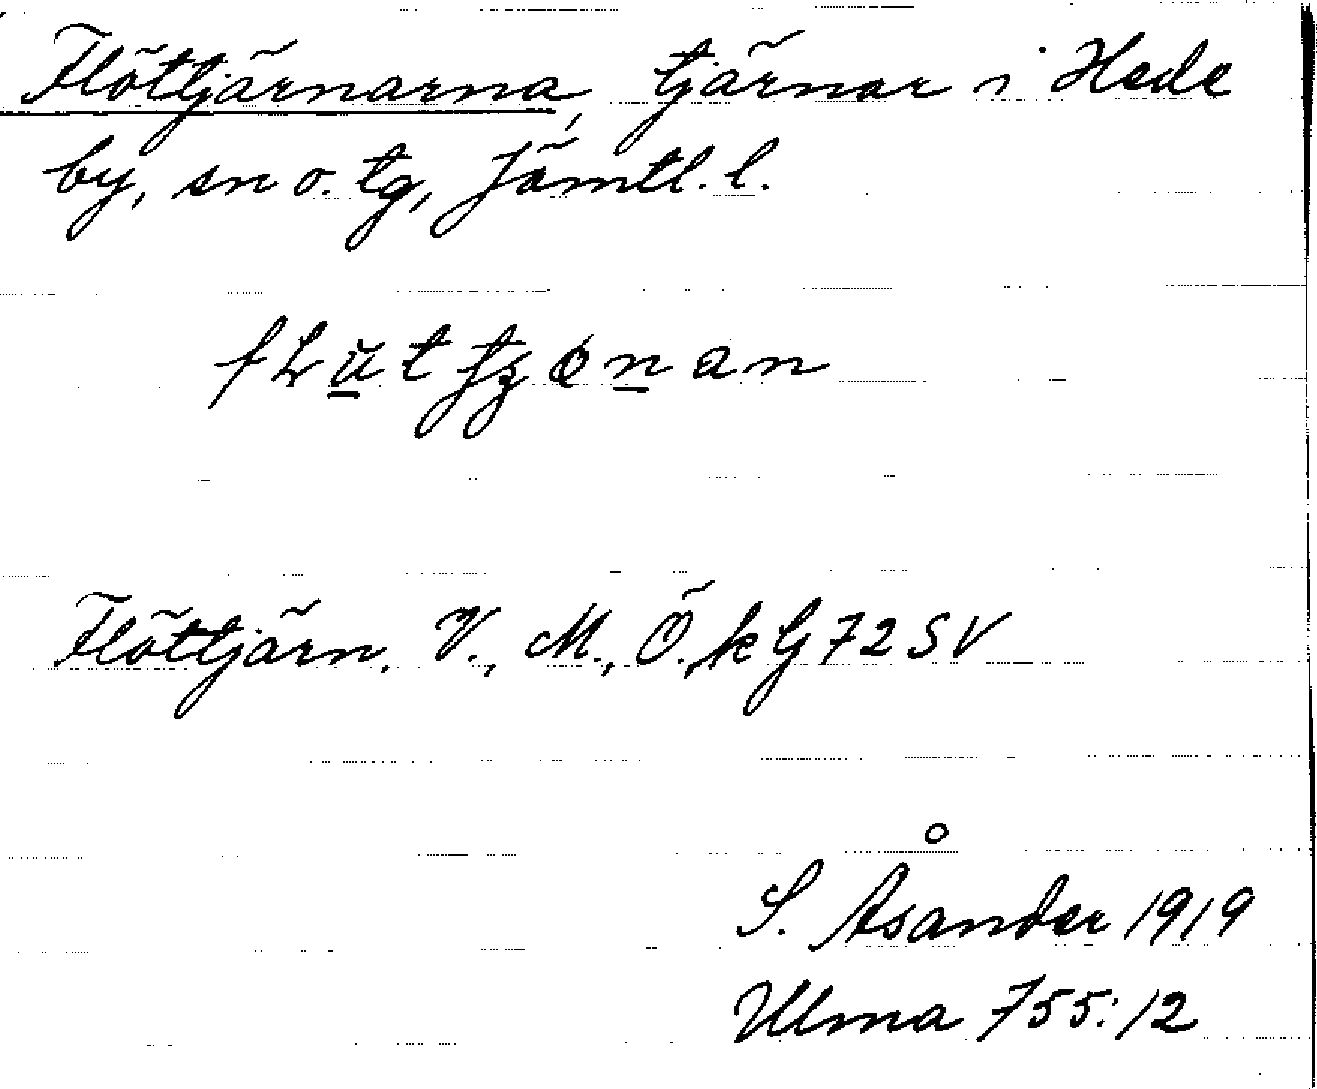 Flöttjärnarna, tjärnar i Hede
by, sn o. tg, Jämtl. l.
Flöttjärn. V., M., Ö., kG 72 SV
S. Åsander 1919
Ulma 755:12